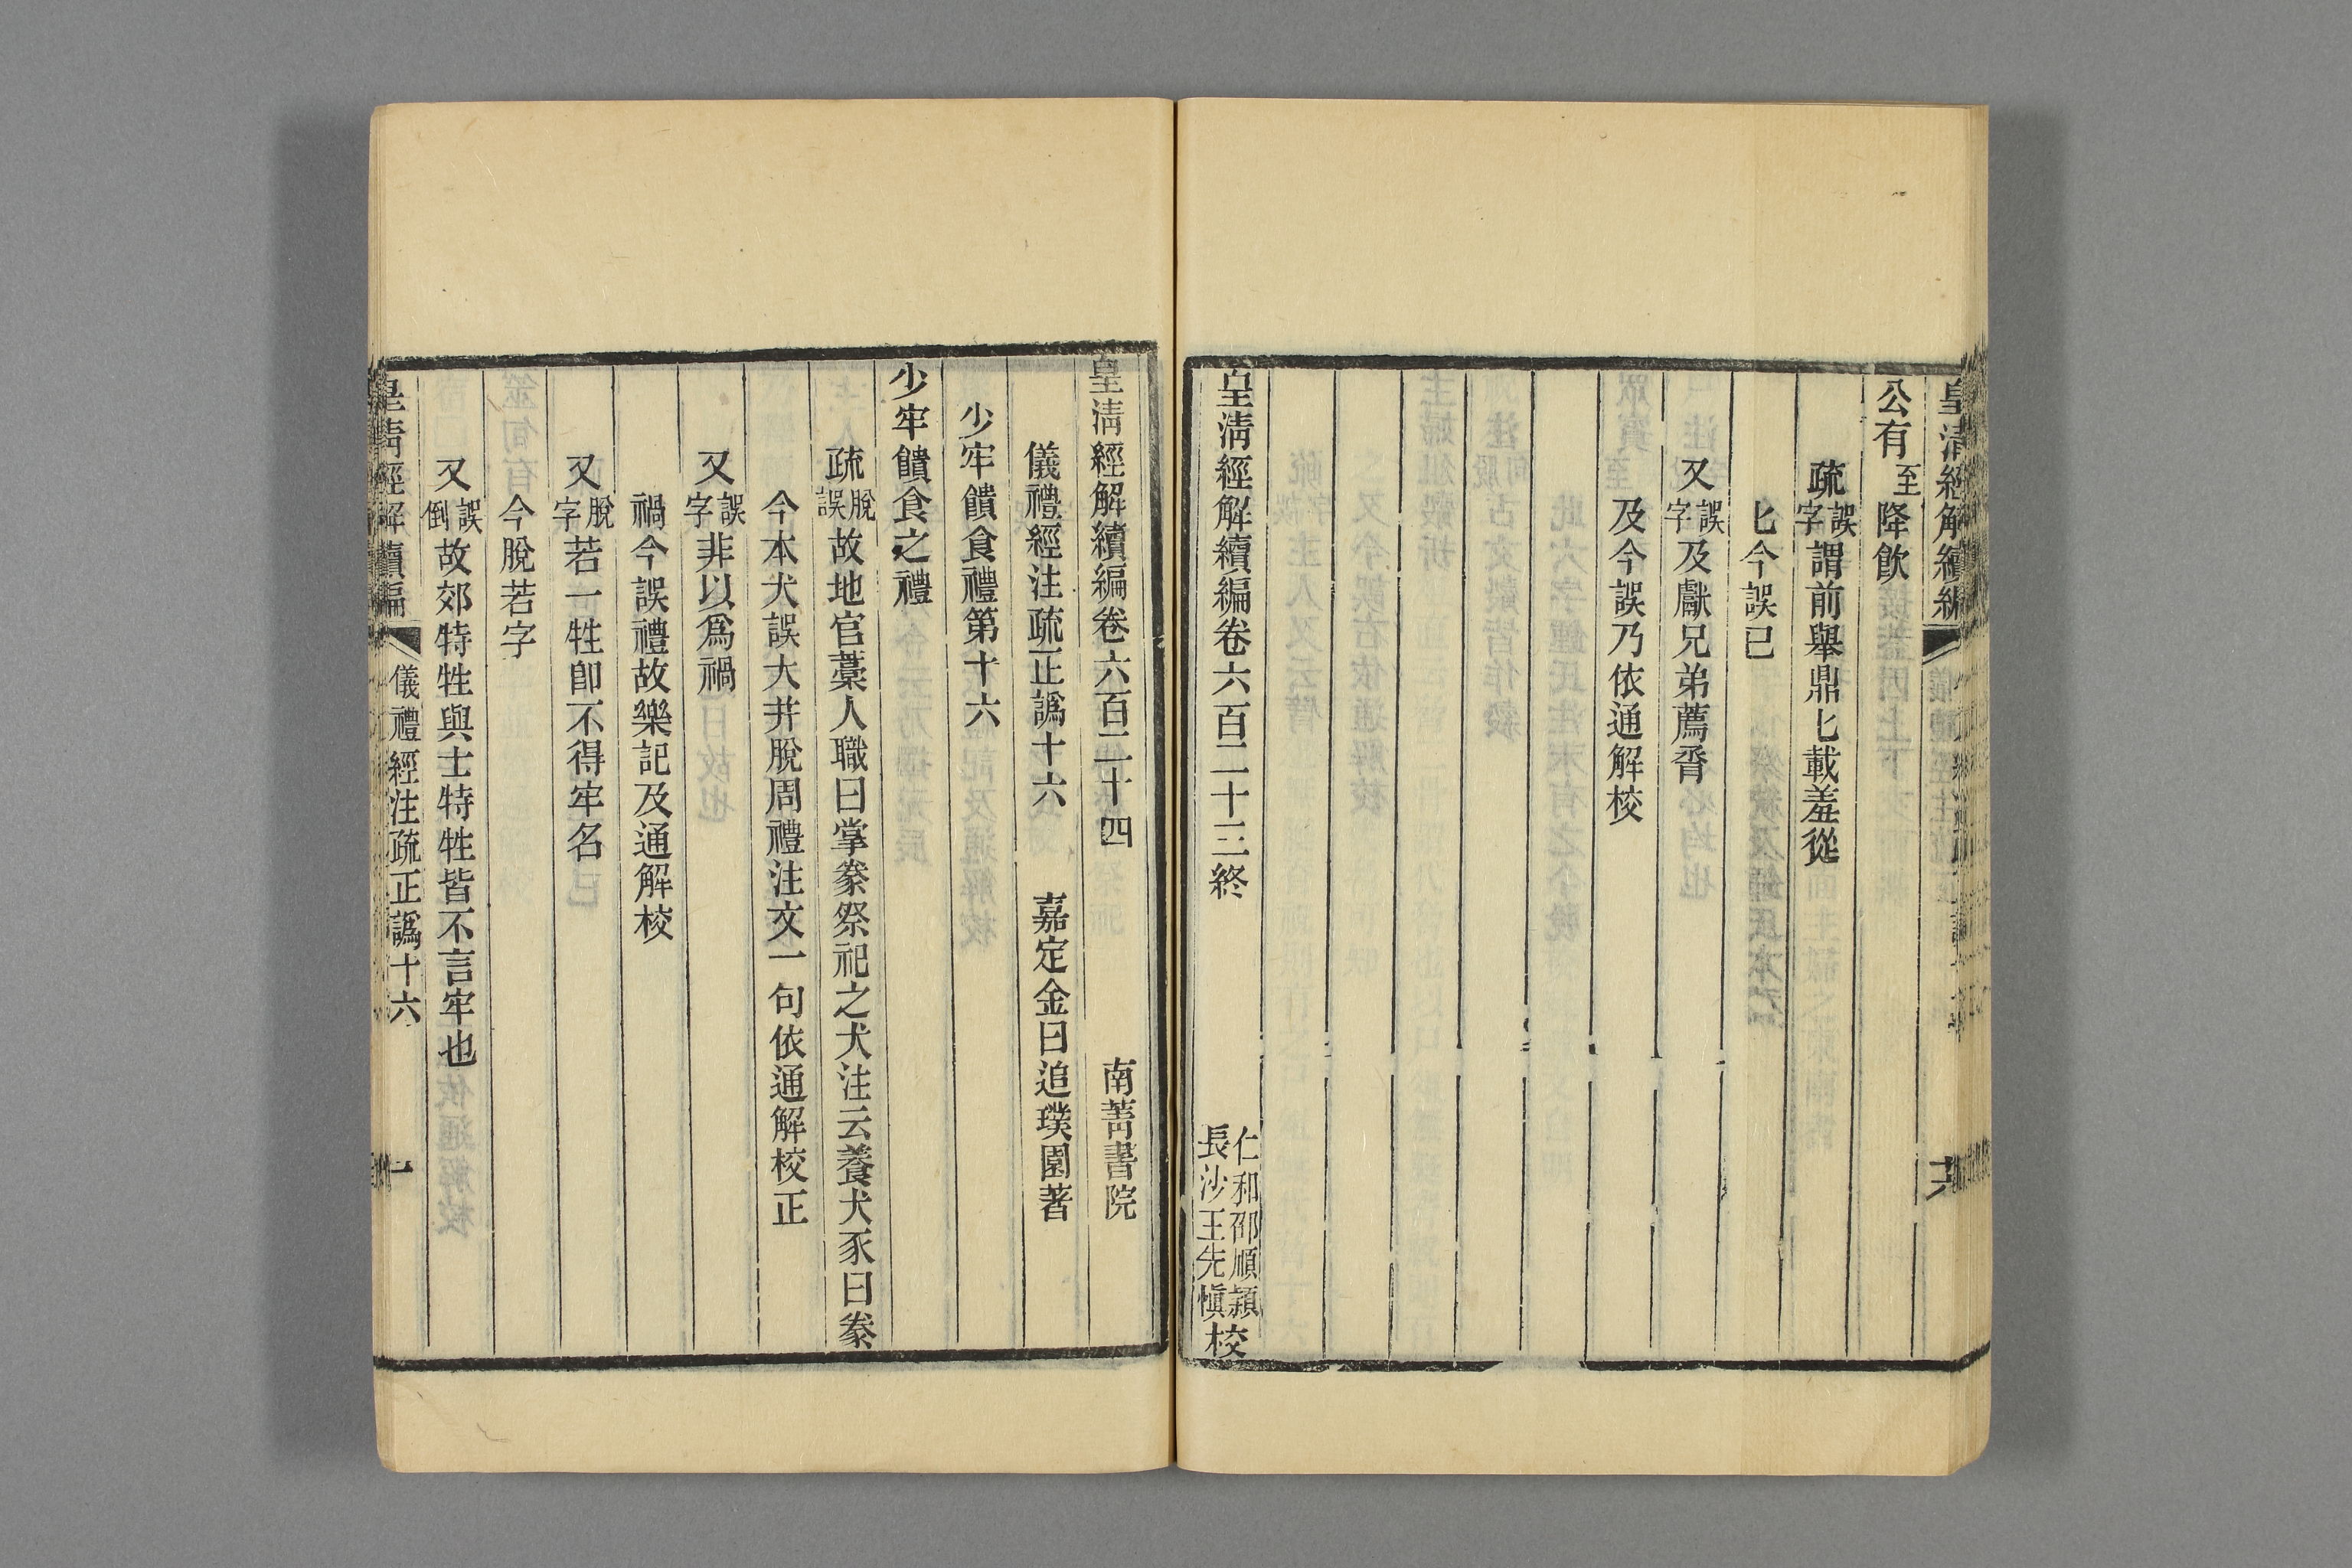 皇清經解續編
公有至降飲
疏誤字謂前舉鼎匕載羞從
匕今誤已
又誤字及獻兄弟薦脀
及今誤乃依通解校
皇清經解續編卷六百二十三終
仁和邵順穎
長沙王先愼校
皇清經解續編卷六百二十四
南菁書院
儀禮經注疏正譌十六
嘉定金曰追璞園著
少牢饋食禮第十六
少牢饋食之禮
疏脫誤故地官藁人職曰掌豢祭祀之犬注云養犬豕曰豢
今本犬誤大井脫周禮注文一句依通解校正
又誤字非以爲禍
禍今誤禮故樂記及通解校
又脫字若一牲卽不得牢名
今脫若字
又誤倒故郊特牲與士特牲皆不言牢也
皇清經解續編
儀禮經注疏正譌十六
一